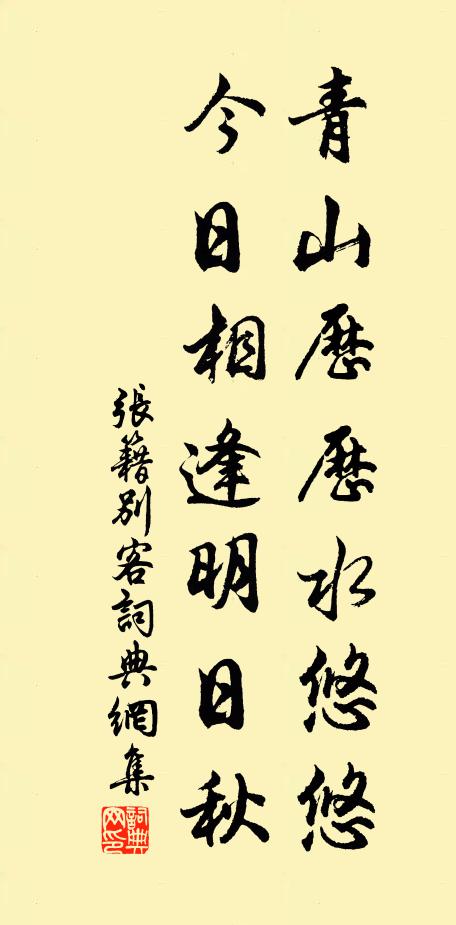 青山歷歷水悠悠
今日相逢明日秋
張籍別客詞典網集
詞典
网印